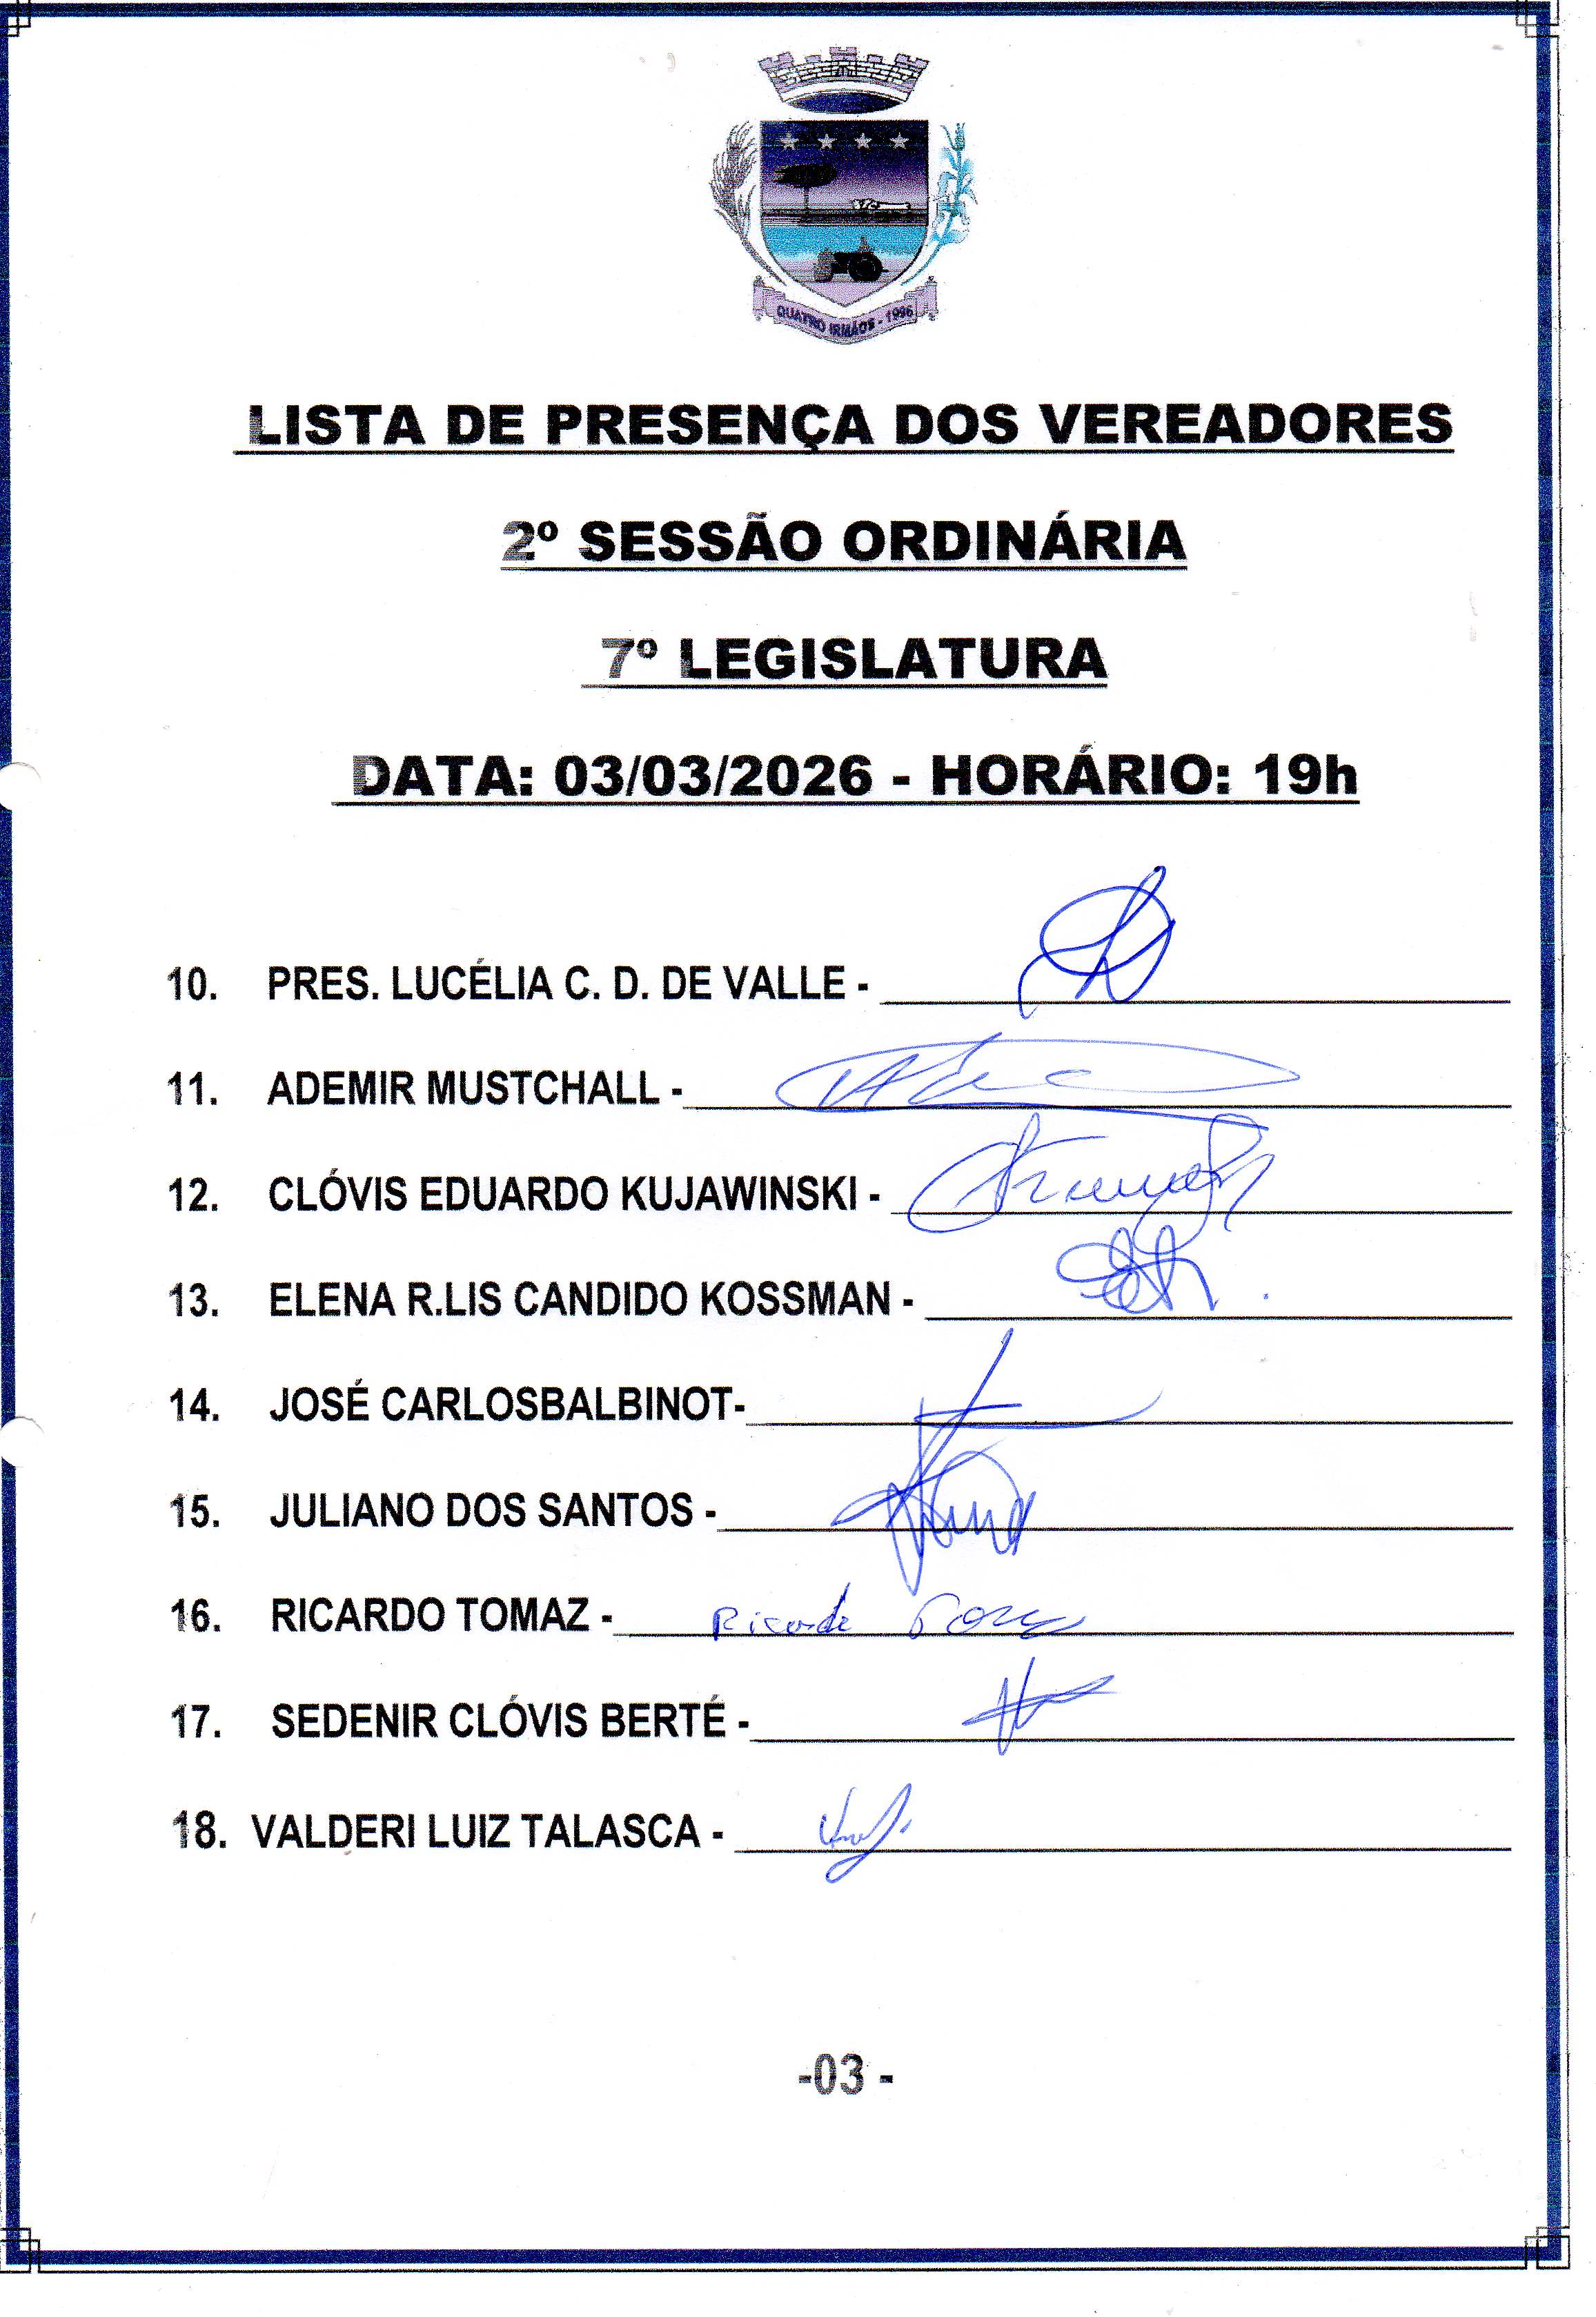 QUATRO IRMÃOS - 1996
LISTA DE PRESENÇA DOS VEREADORES
2º SESSÃO ORDINÁRIA
7º LEGISLATURA
DATA: 03/03/2026 - HORÁRIO: 19h
10. PRES. LUCÉLIA C. D. DE VALLE -
11. ADEMIR MUSTCHALL -
12. CLÓVIS EDUARDO KUJAWINSKI -
13. ELENA R.LIS CANDIDO KOSSMAN -
14. JOSÉ CARLOSBALBINOT-
15. JULIANO DOS SANTOS -
16. RICARDO TOMAZ - Ricardo
17. SEDENIR CLÓVIS BERTÉ -
18. VALDERI LUIZ TALASCA -
-03 -